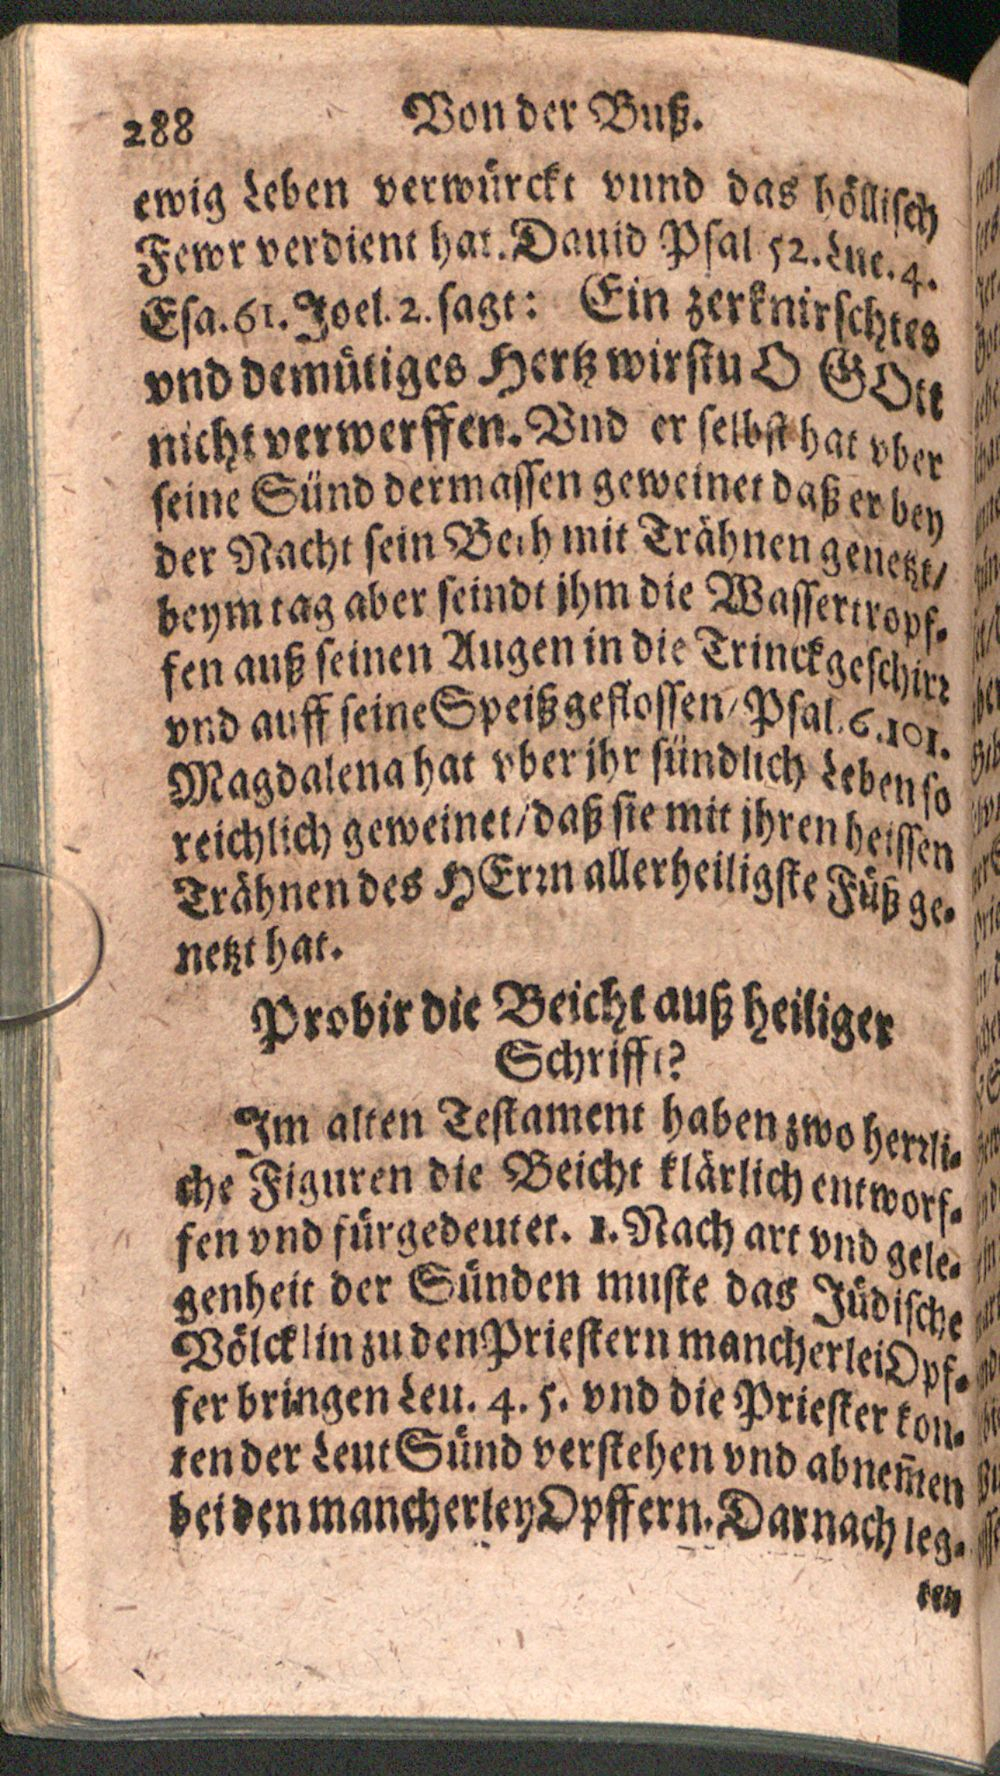 288 Von der Buß.
ewig Leben verwürckt vnnd das höllisch
Fewr verdient hat. Dauid Psal 52. Luc. 4.
Esa. 61. Joel. 2. sagt: Ein zerknirschtes
vnd demütiges Hertz wirstu O GOtt
nicht verwerffen. Vnd er selbst hat vber
seine Sünd dermassen geweinet daß er bey
der Nacht sein Beth mit Trähnen genetzt/
beym tag aber seindt jhm die Wassertropf-
fen auß seinen Augen in die Trinckgeschirr
vnd auff seine Speiß geflossen/ Psal. 6. 101.
Magdalena hat vber jhr sündlich Leben so
reichlich geweinet/ daß sie mit jhren heissen
Trähnen des HErrn allerheiligste Füß ge-
netzt hat.
Probir die Beicht auß heiliger
Schrifft?
Im alten Testament haben zwo herrli-
che Figuren die Beicht klärlich entworf-
fen vnd fürgedeutet. 1. Nach art vnd gele-
genheit der Sünden muste das Jüdische
Völcklin zu den Priestern mancherlei Opf-
fer bringen Leu. 4. 5. vnd die Priester kon-
ten der Leut Sünd verstehen vnd abnem̄en
bei den mancherley Opffern. Darnach leg-
ten